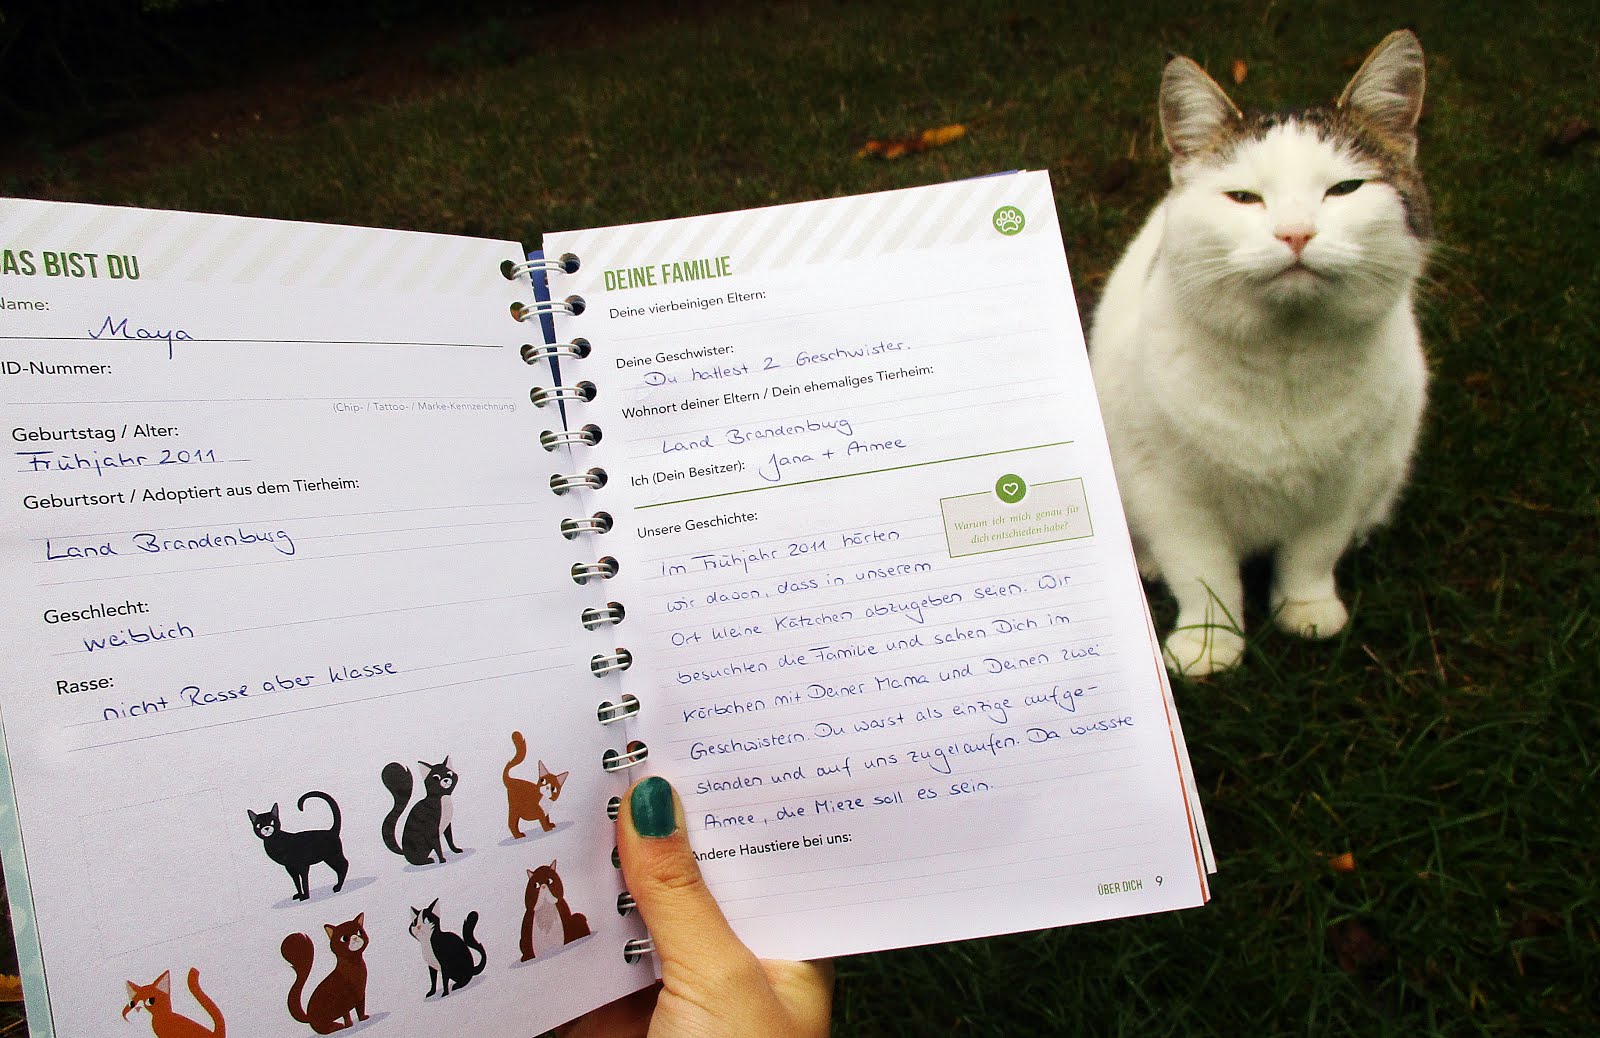 AS BIST DU
Name:
Maya
ID-Nummer:
(Chip- / Tattoo- / Marke-Kennzeichnung)
Geburtstag / Alter:
Frühjahr 2011
Geburtsort / Adoptiert aus dem Tierheim:
Land Brandenburg
Geschlecht:
weiblich
Rasse:
nicht Rasse aber klasse
DEINE FAMILIE
Deine vierbeinigen Eltern:
Deine Geschwister:
Du hattest 2 Geschwister.
Wohnort deiner Eltern / Dein ehemaliges Tierheim:
Land Brandenburg
Ich (Dein Besitzer): Jana + Aimee
Unsere Geschichte:
Warum ich mich genau für
dich entschieden habe?
Im Frühjahr 2011 hörten
wir davon, dass in unserem
Ort kleine Kätzchen abzugeben seien. Wir
besuchten die Familie und sahen Dich im
Körbchen mit Deiner Mama und Deinen zwei
Geschwistern. Du warst als einzige aufge-
standen und auf uns zugelaufen. Da wusste
Aimee, die Mieze soll es sein.
Andere Haustiere bei uns:
ÜBER DICH 9